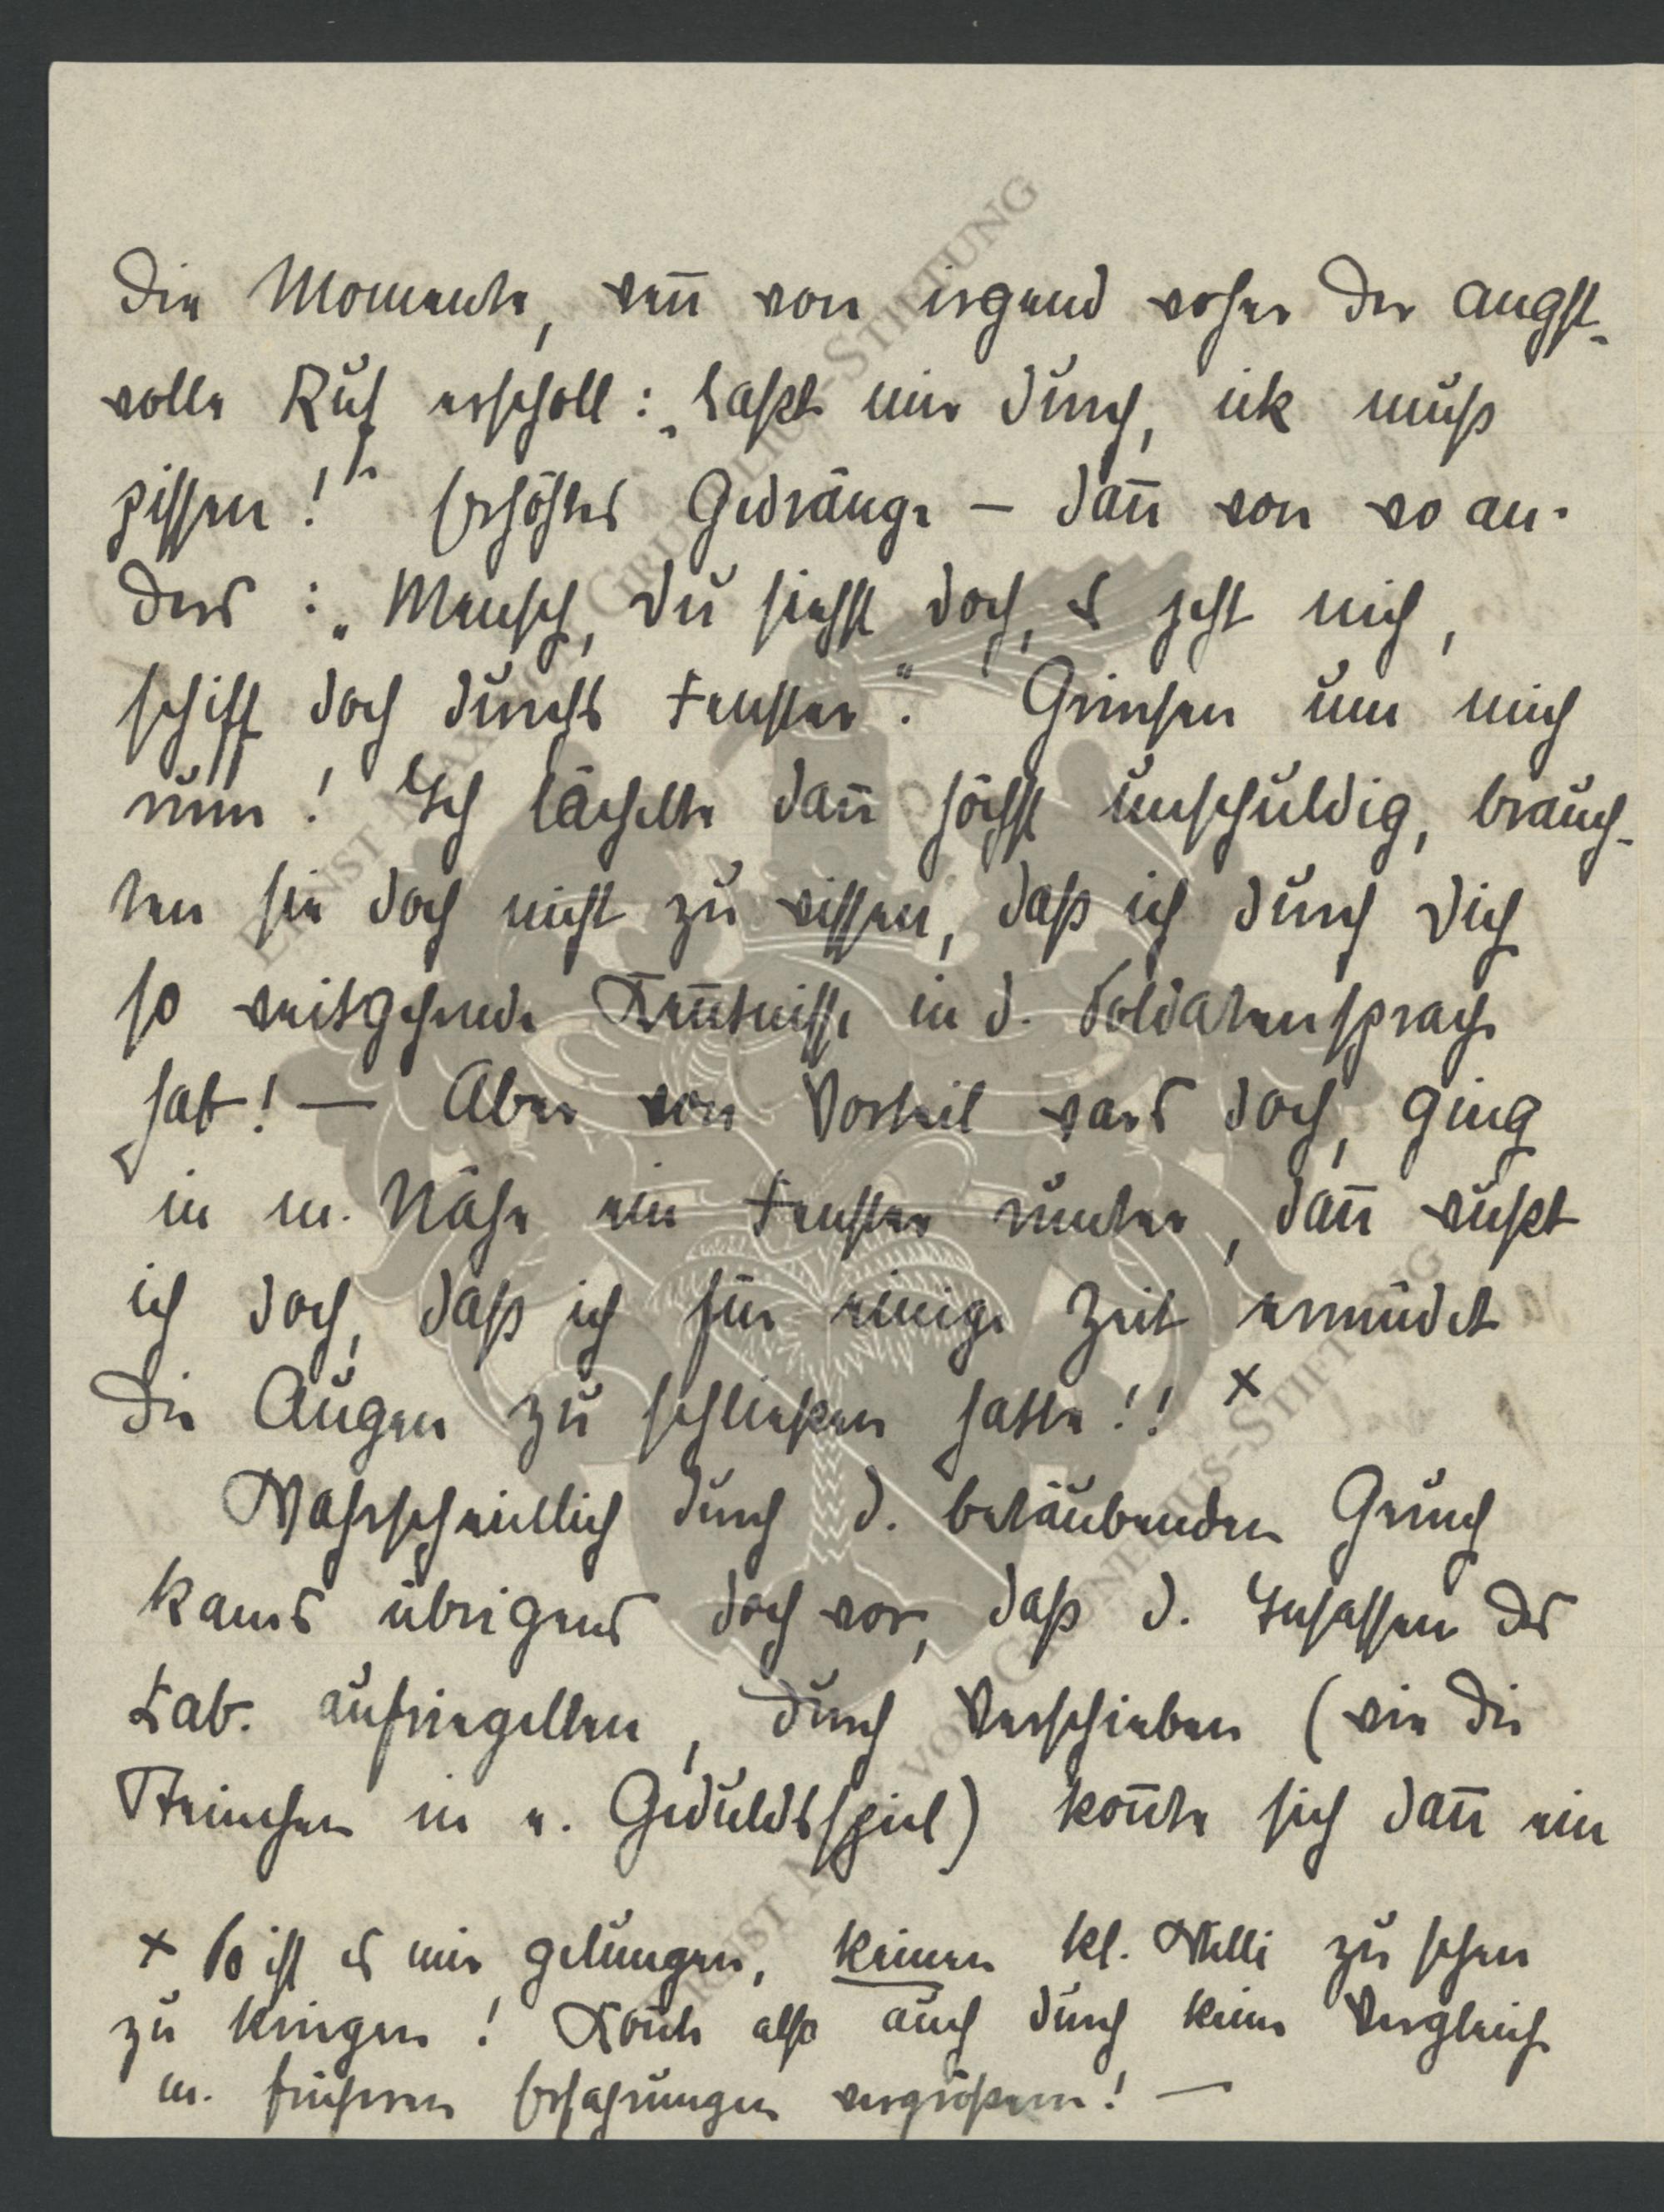 die Momente, wenn von irgend woher der angst-
volle Ruf erscholl: „Laßt mir durch, ick muß
pissen!“ Erhöhtes Gedränge – dann von wo an-
ders: „Mensch, Du siehst doch, es jeht nich,
schiff doch durchs Fenster“. Grinsen um mich
rum! Ich lächelte dann höchst unschuldig, brauch-
ten sie doch nicht zu wissen, daß ich durch Dich
so weitgehende Kenntnisse in d. Soldatensprache
hab! – Aber von Vorteil wars doch, ging
in m. Nähe ein Fenster runter, dann wußt
ich doch, daß ich für einige Zeit ermüdet
die Augen zu schließen hatte!! x
Wahrscheinlich durch d. betäubenden Geruch
kams übrigens doch vor, daß d. Insassen des
Lab. aufriegelten, durch Verschieben (wie die
Steinchen in e. Geduldsspiel) konnte sich dann ein
x So ist es mir gelungen, keinen kl. Willi zu sehen
zu kriegen! Konnte also auch durch keine Vergleiche
m. früheren Erfahrungen vergrößern! –
ERNST MAX VON GRUNELIUS-STIFTUNG
ERNST MAX VON GRUNELIUS-STIFTUNG